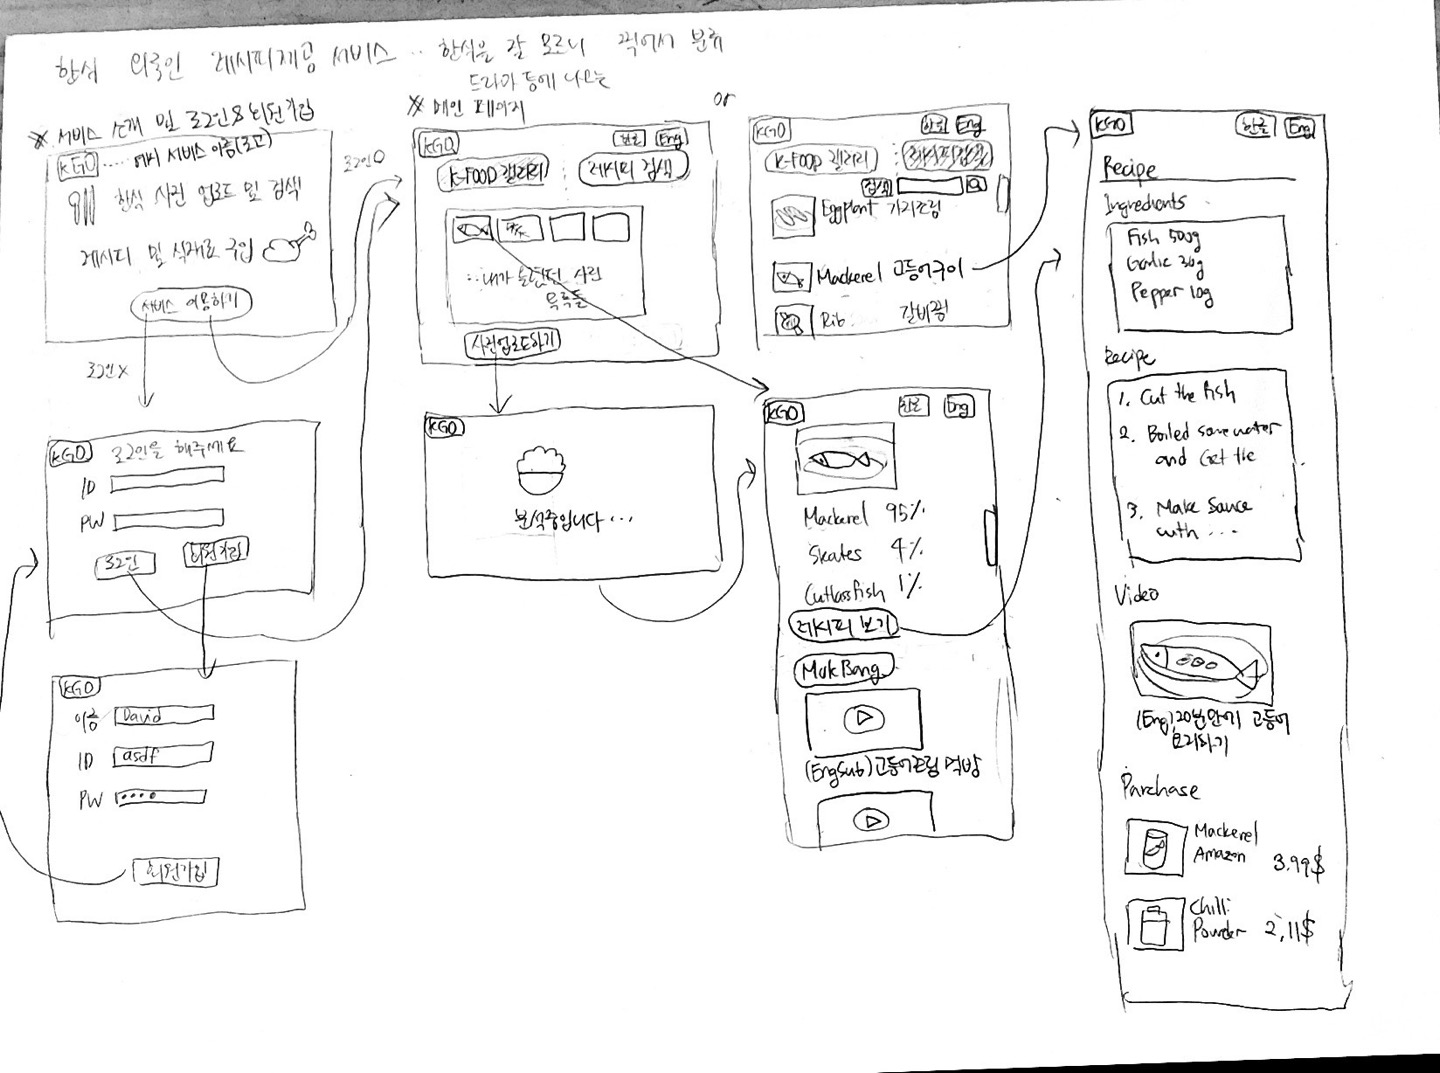 한식 외국인 레시피제공 서비스 .. 한식을 잘 모르니 찍어서 분류
드라마 등에 나오는
※ 서비스 소개 및 로그인 & 회원가입
KGO ..... 예시 서비스 이름(로고)
한식 사진 업로드 및 검색
레시피 및 식재료 구입
서비스 이용하기
로그인 O
로그인 X
KGO 로그인을 해주세요
ID
PW
로그인 회원가입
KGO
이름 David
ID asdf
PW ••••
회원가입
※ 메인 페이지
KGO 한글 Eng
K-FOOD 갤러리 레시피 검색
..내가 올렸던 사진
목록들
사진업로드하기
KGO
분석중입니다...
or
KGO 한글 Eng
K-FOOD 갤러리 레시피검색
검색
Eggplant 가지조림
Mackerel 고등어구이
Rib 갈비찜
KGO 한글 Eng
Mackerel 95%
Skates 4%
Cutlassfish 1%
레시피 보기
MukBang
(Engsub)고등어조림 먹방
KGO 한글 Eng
Recipe
Ingredients
Fish 500g
Garlic 30g
Pepper 10g
Recipe
1. Cut the fish
2. Boiled some water
and Get the
3. Make Sauce
with ...
Video
(Eng)20분만에 고등어
요리하기
Parchase
Mackerel
Amazon 3.99$
Chilli
Powder 2,11$